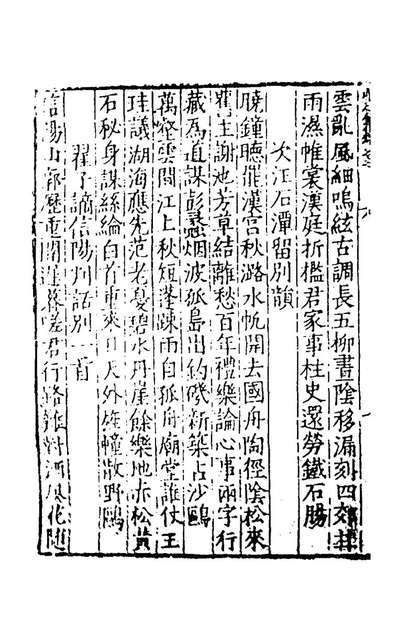 雲亂風細鳴絃古調長五柳書陰移漏刻四郊
雨濕帷裳漢庭折檻君家事柱史還勞鐵石腸
次江石潭留別韻
曉鐘聽催漢宮秋潞水帆開去國舟陶徑陰松來
舊主謝池芳草結離愁百年禮樂論心事兩字行
藏為道謀彭蠡烟波孤島出釣磯新築占沙鷗
萬壑雲間江上秋短蓬踈雨白孤舟廟堂誰仗王
珪議湖海應先范老憂碧水丹崖餘樂地赤松黃
石秘身謀絲綸白首重來日天外旌幢散野鷗
翟子謫信陽州話別一首
信陽山郭歷重關蓬蓽君行路難對酒